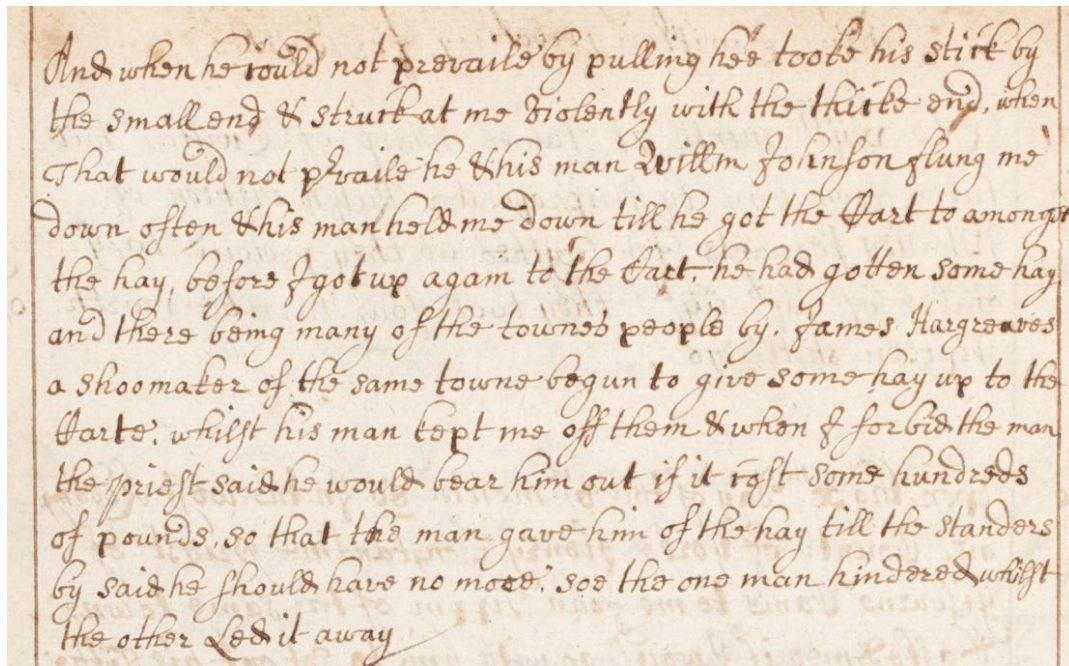 And when he could not prevaile by pulling hee tooke his stick by
the small end & struck at me Violently with the thicke end, when
That would not pRvaile he & his man Willm Johnson flung me
down often & his man held me down till he got the Cart to amongst
the hay, before I got up again to the Cart, he had gotten some hay
and there being many of the townes people by. James Hargreaves
a shoomaker of the same towne begun to give some hay up to the
Carte, whilst his man kept me off them & when I forbid the man
the priest said he would bear him out if it cost some hundreds
of pounds, so that the man gave him of the hay till the standers
by said he should have no more, soe the one man hindered whilst
the other Led it away